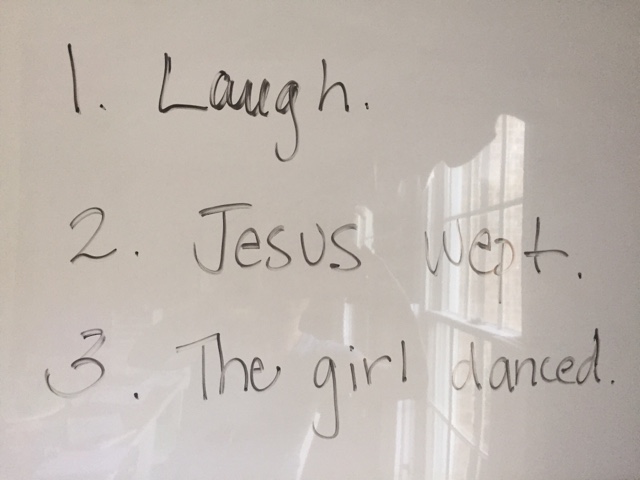 1. Laugh.
2. Jesus wept.
3. The girl danced.